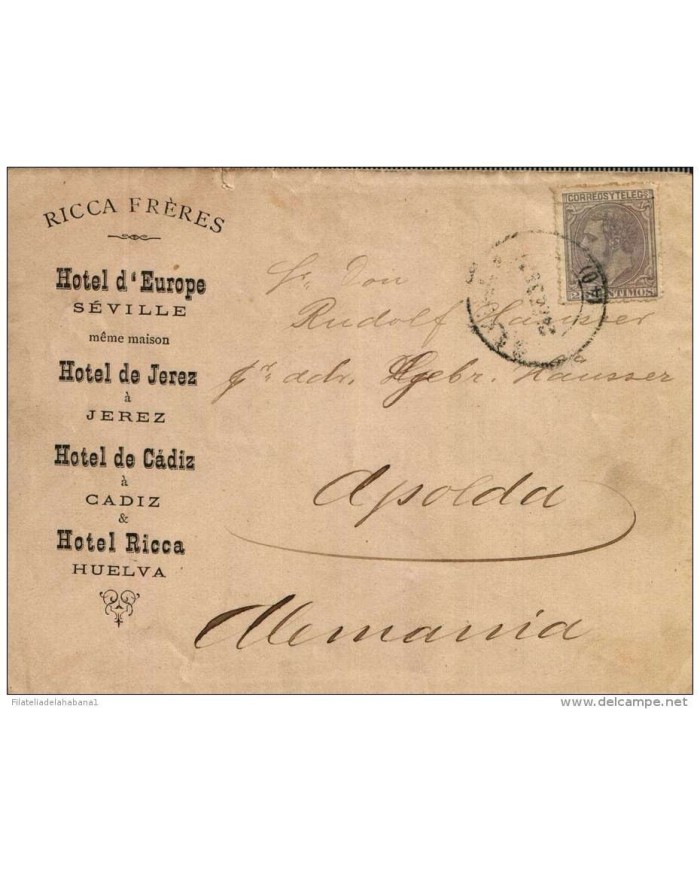 RICCA FRÈRES
Hotel d'Europe
SÉVILLE
même maison
Hotel de Jerez
à
JEREZ
Hotel de Cádiz
à
CADIZ
&
Hotel Ricca
HUELVA
CORREOS Y TELEGS
Sr. Don
Rudolf Häusser
Gebr. Häusser
Apolda
Alemania
Filateliadelahabana1
delcampe.net